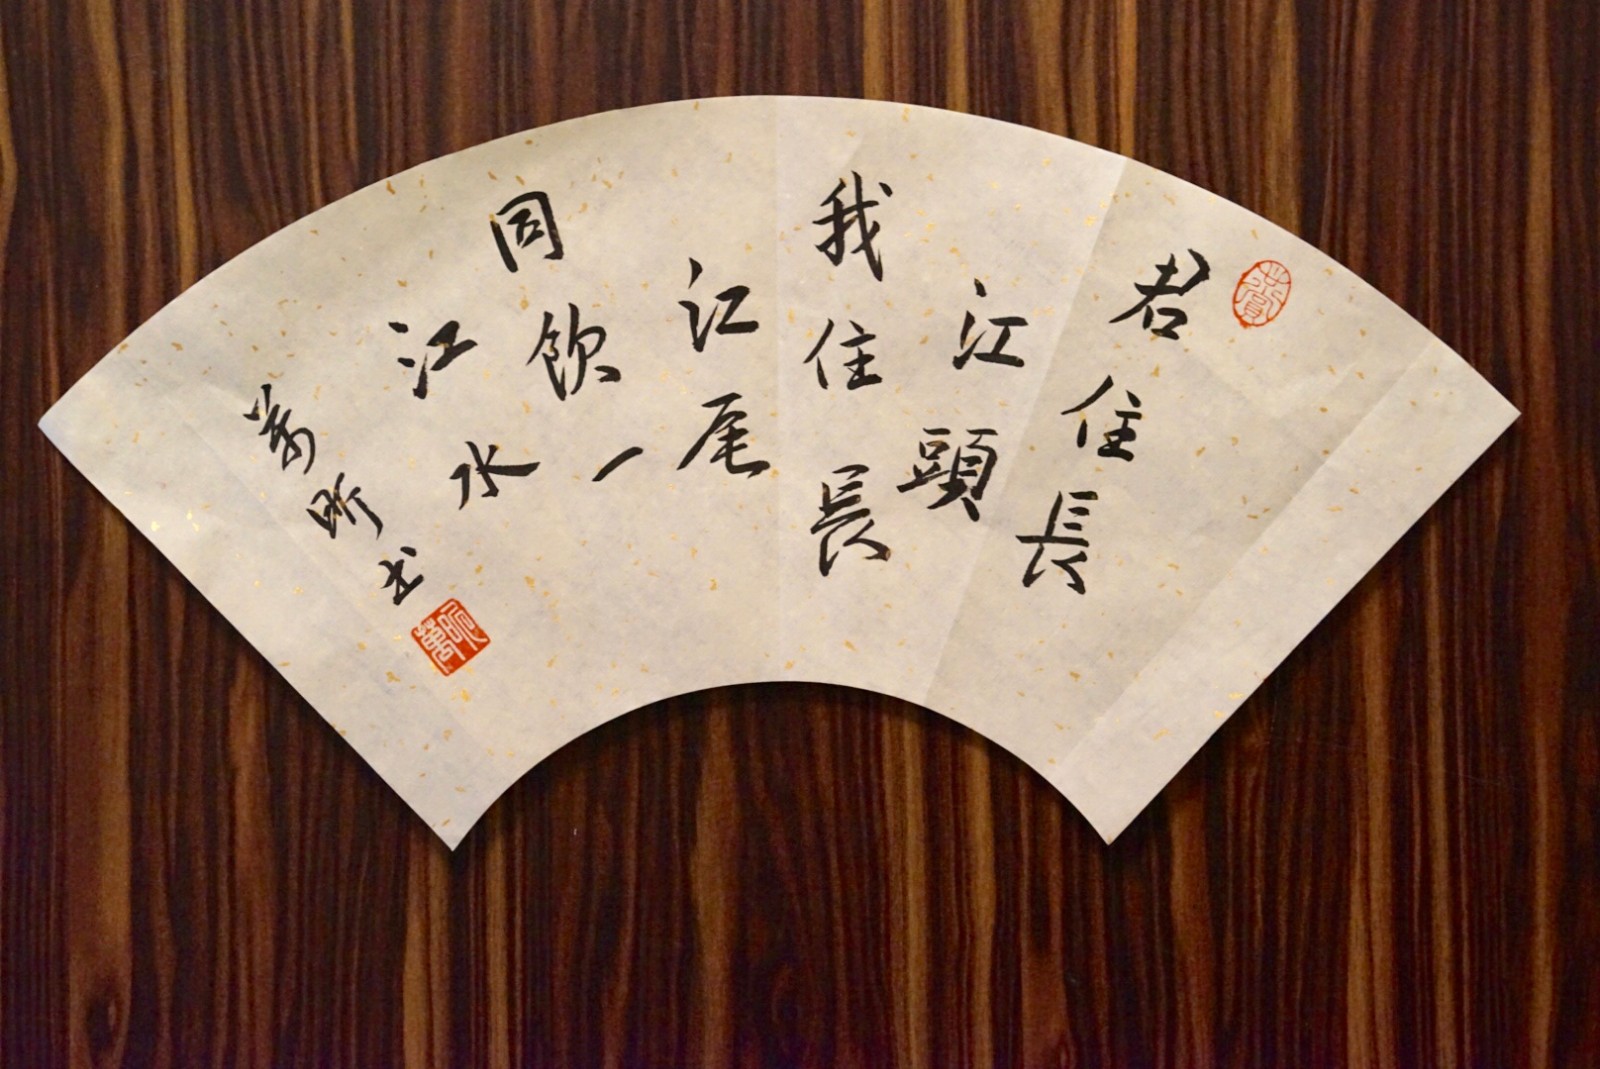 君住長
江頭
我住長
江尾
同飲一
江水
萬昕书